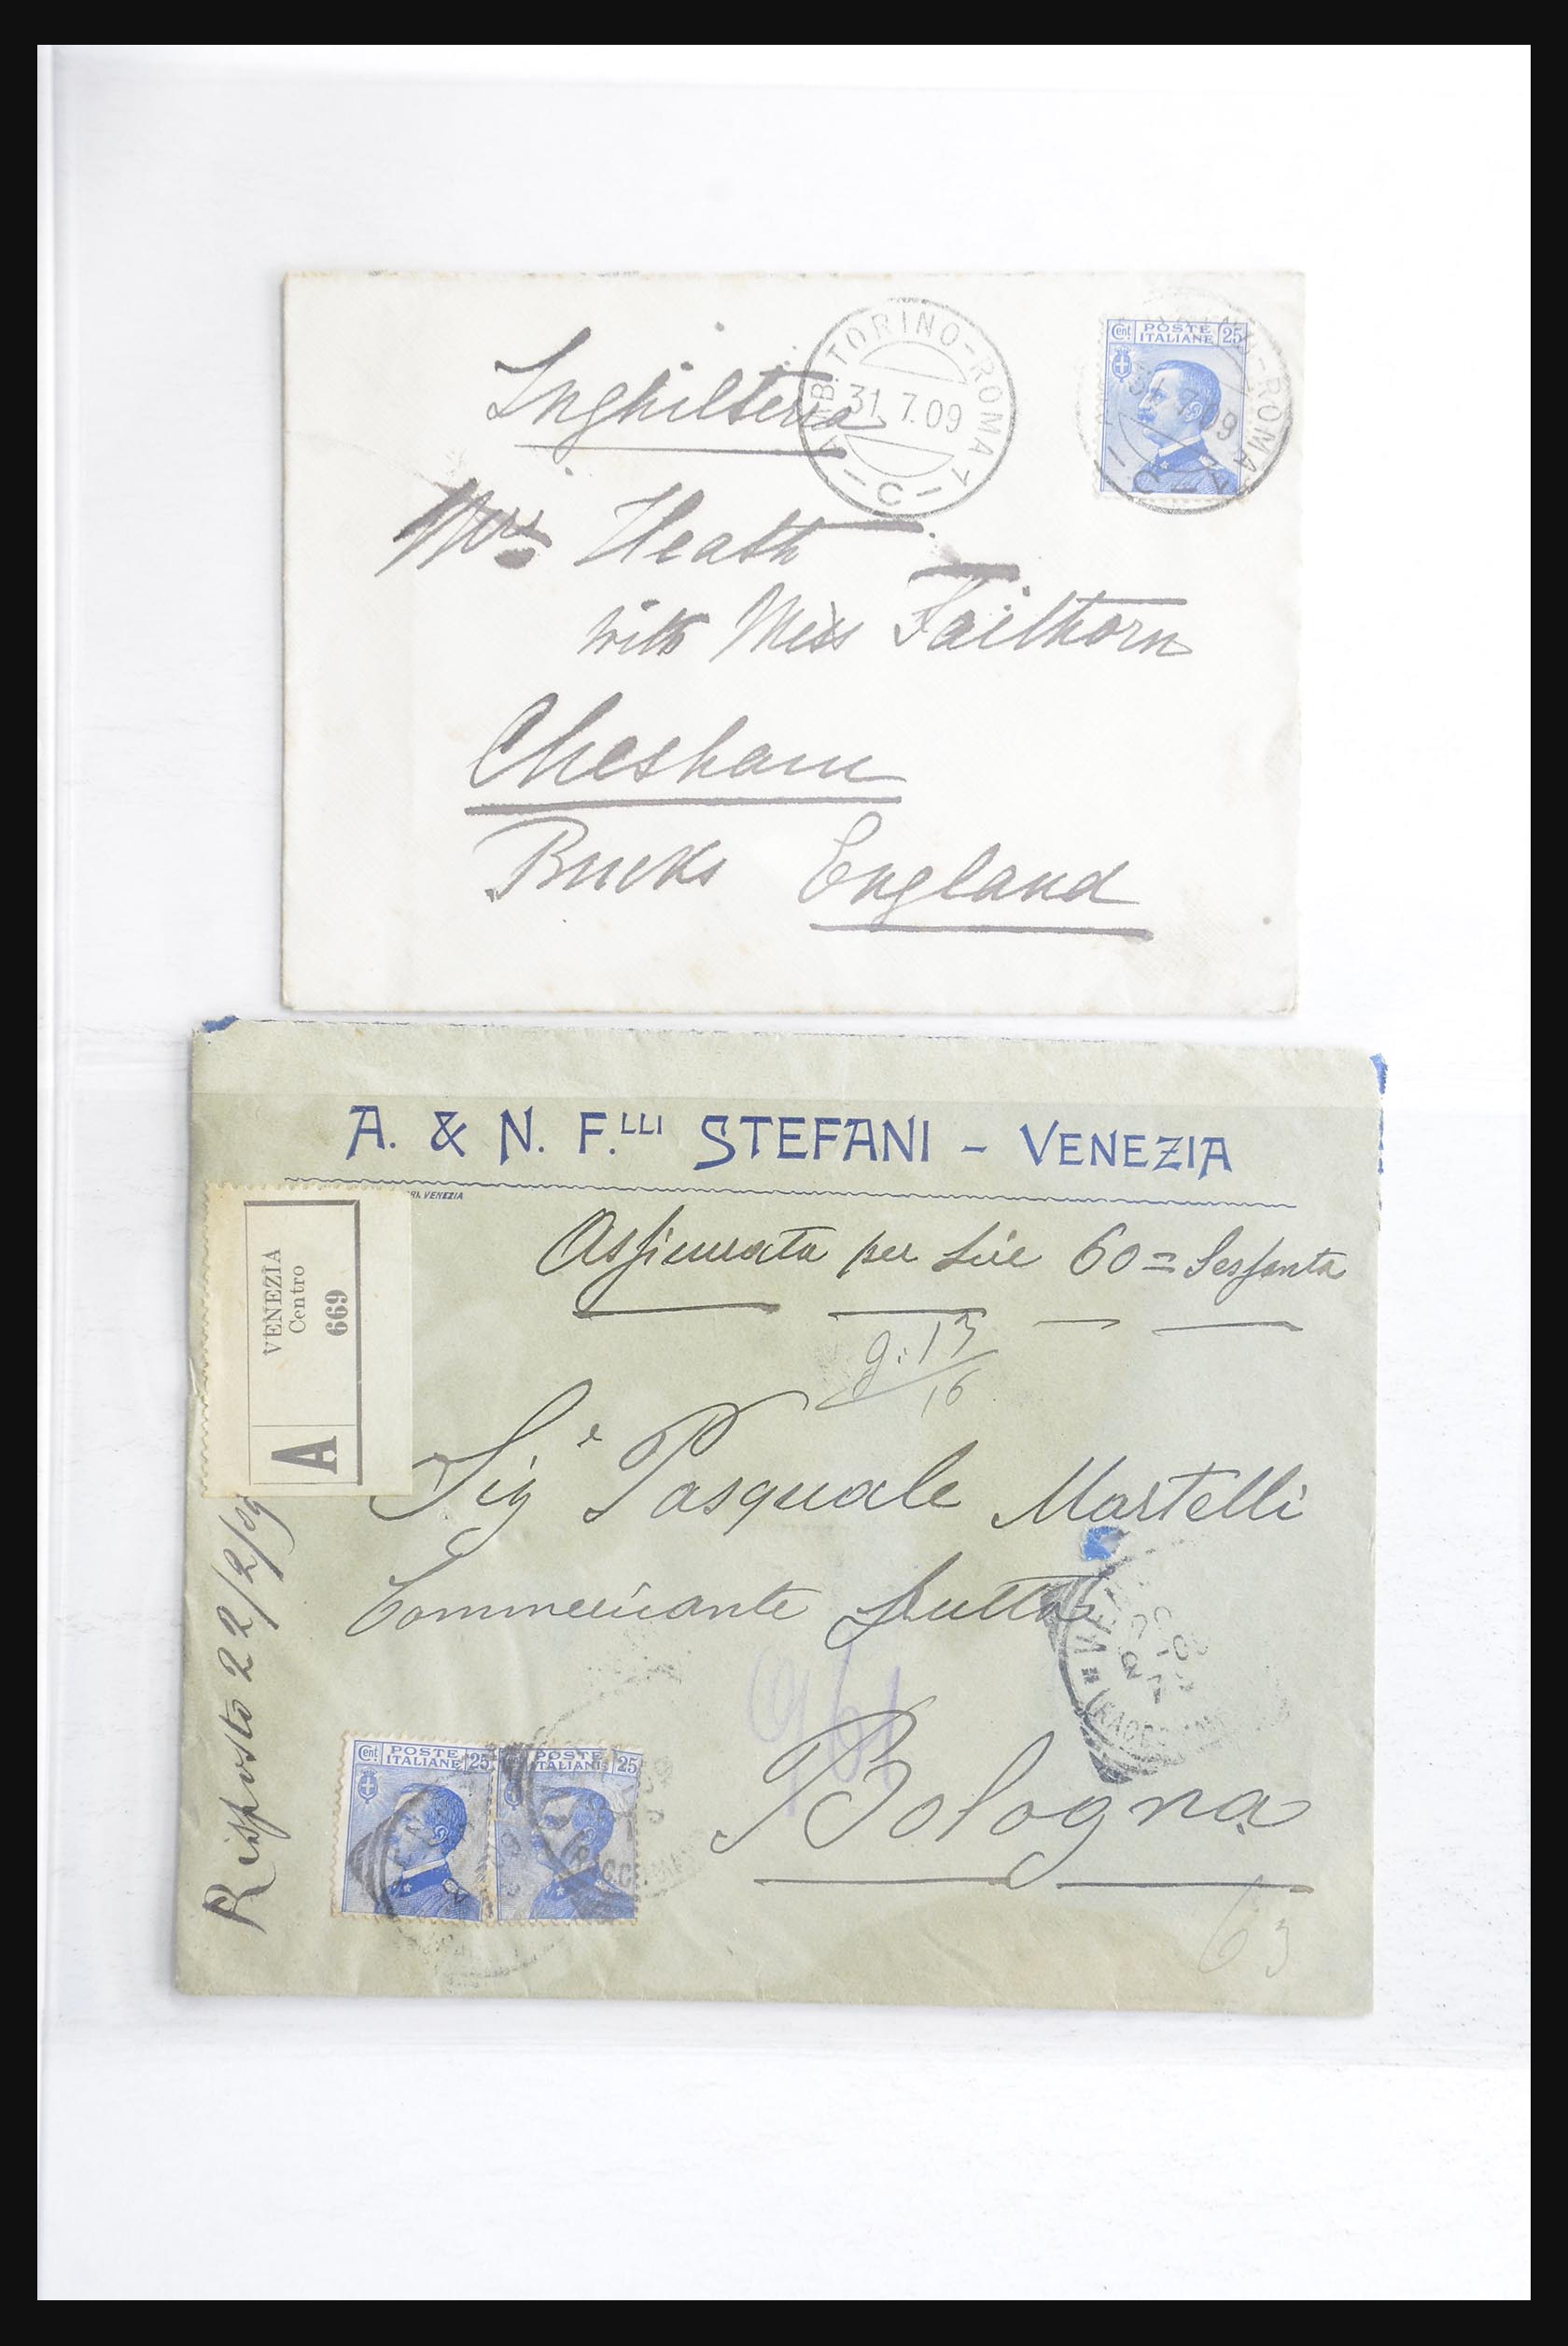 Inghilterra
AMB. TORINO-ROMA 7
31.7.09
-C-
Cent POSTE 25
ITALIANE
-ROMA 7
31.7.09
-C-
Mrs Heath
with Miss Faithorn
Chesham
Bucks England
A. & N. F.LLI STEFANI - VENEZIA
VENEZIA
VENEZIA
Centro
669
A
Assicurata per Lire 60 = Sessanta
g. 15/16
Sig.r Pasquale Martelli
Commerciante
Bologna
961
63
Risposto 22/2/09
Cent. POSTE 25
ITALIANE
POSTE 25
ITALIANE